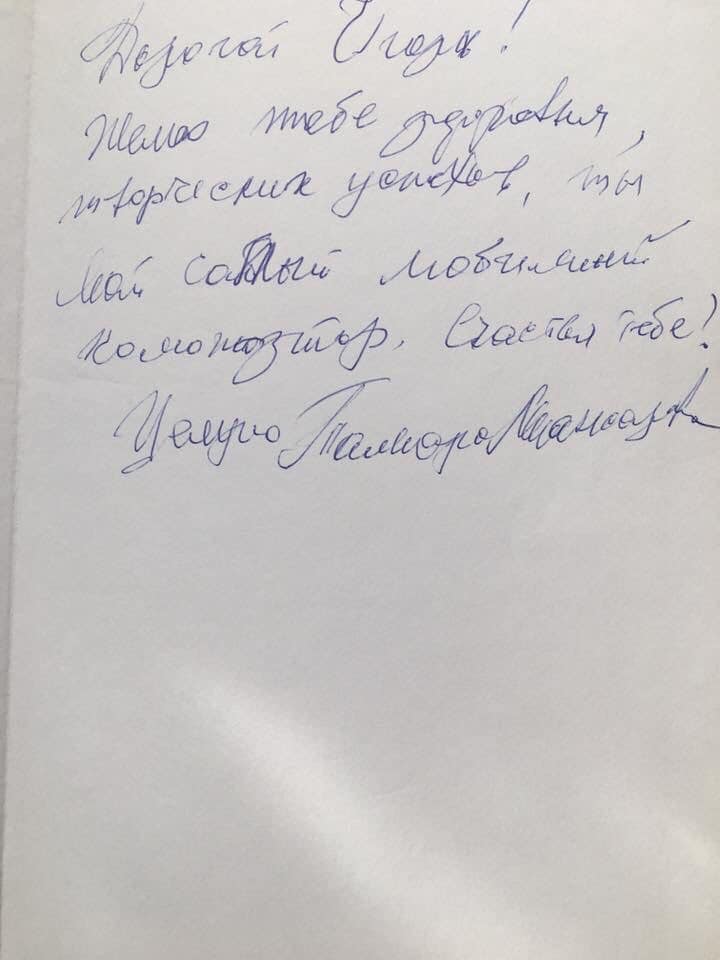 Дорогой Игорь!
Желаю тебе здоровья,
творческих успехов, ты
мой самый любимый
композитор. Счастья тебе!
Целую Тамара